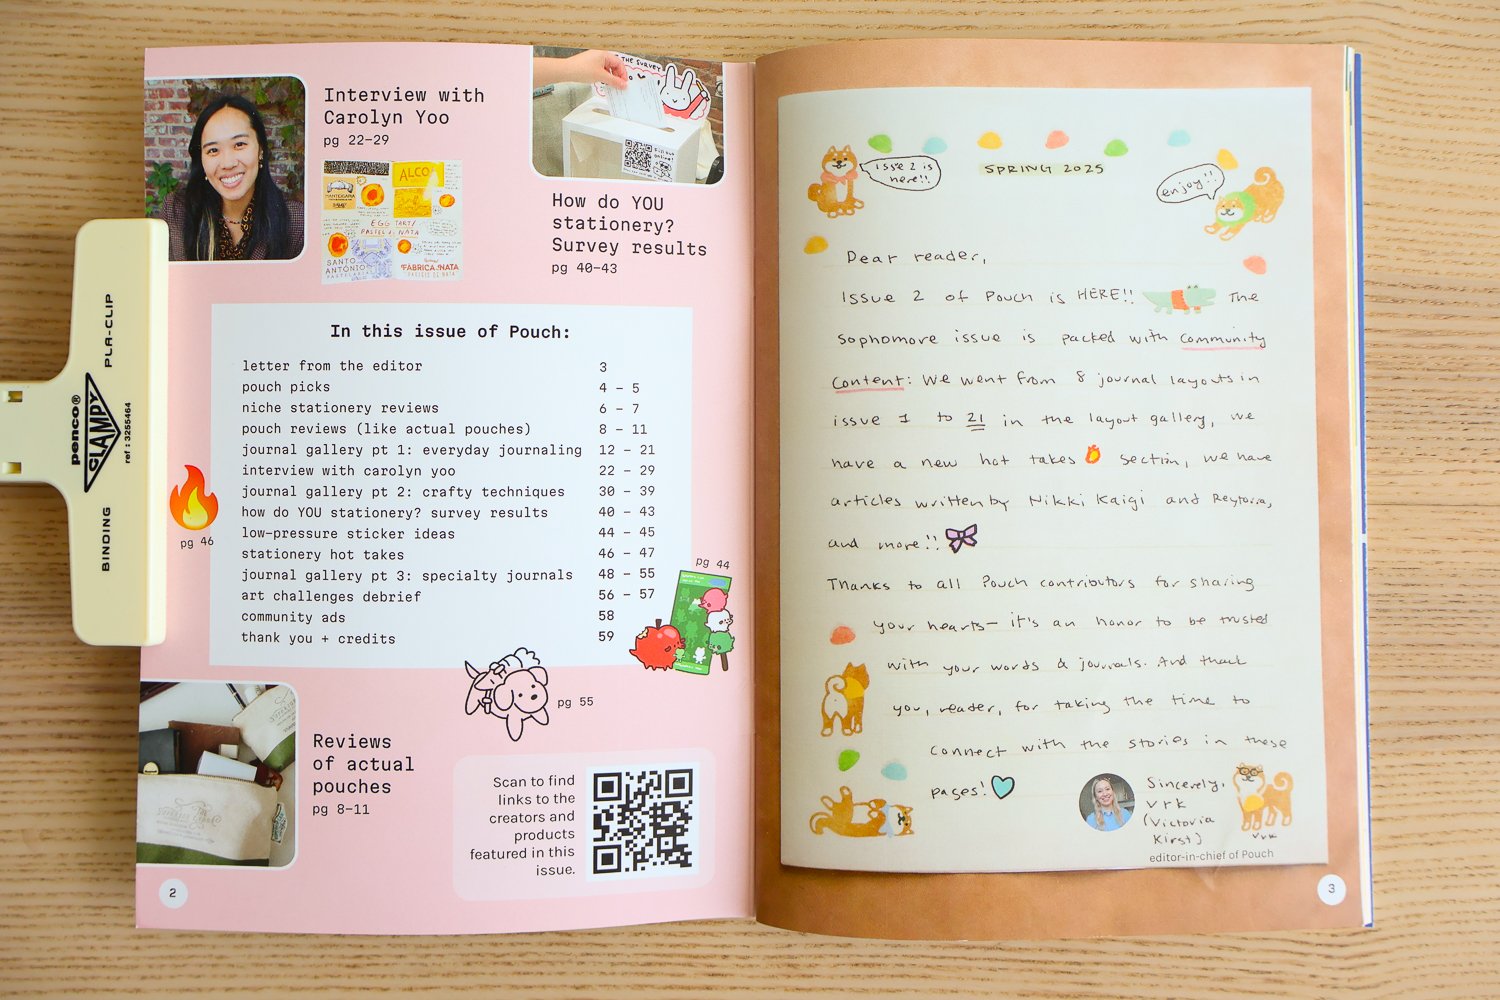 PLA-CLIP
penco®
CLAMPY
ref : 3255464
BINDING
Interview with
Carolyn Yoo
pg 22–29
ALCO
MANTEIGARIA
EGG TART/
PASTEL de NATA
SANTO
ANTÓNIO
PASTELARIA
FÁBRICA NATA
PASTÉIS DE NATA
THE SURVEY
How do YOU
stationery?
Survey results
pg 40–43
In this issue of Pouch:
letter from the editor 3
pouch picks 4 – 5
niche stationery reviews 6 – 7
pouch reviews (like actual pouches) 8 – 11
journal gallery pt 1: everyday journaling 12 – 21
interview with carolyn yoo 22 – 29
journal gallery pt 2: crafty techniques 30 – 39
how do YOU stationery? survey results 40 – 43
low-pressure sticker ideas 44 – 45
stationery hot takes 46 – 47
journal gallery pt 3: specialty journals 48 – 55
art challenges debrief 56 – 57
community ads 58
thank you + credits 59
pg 46
pg 44
pg 55
Reviews
of actual
pouches
pg 8–11
Scan to find
links to the
creators and
products
featured in this
issue.
2
issue 2 is
here!!
SPRING 2025
enjoy!!
Dear reader,
Issue 2 of Pouch is HERE!! The
sophomore issue is packed with community
content: We went from 8 journal layouts in
issue 1 to 21 in the layout gallery, we
have a new hot takes section, we have
articles written by Nikki Kaigi and Reytoria,
and more!!
Thanks to all Pouch contributors for sharing
your hearts— it's an honor to be trusted
with your words & journals. And thank
you, reader, for taking the time to
connect with the stories in these
pages!
Sincerely,
vrk
(Victoria
Kirst)
vrk
editor-in-chief of Pouch
3